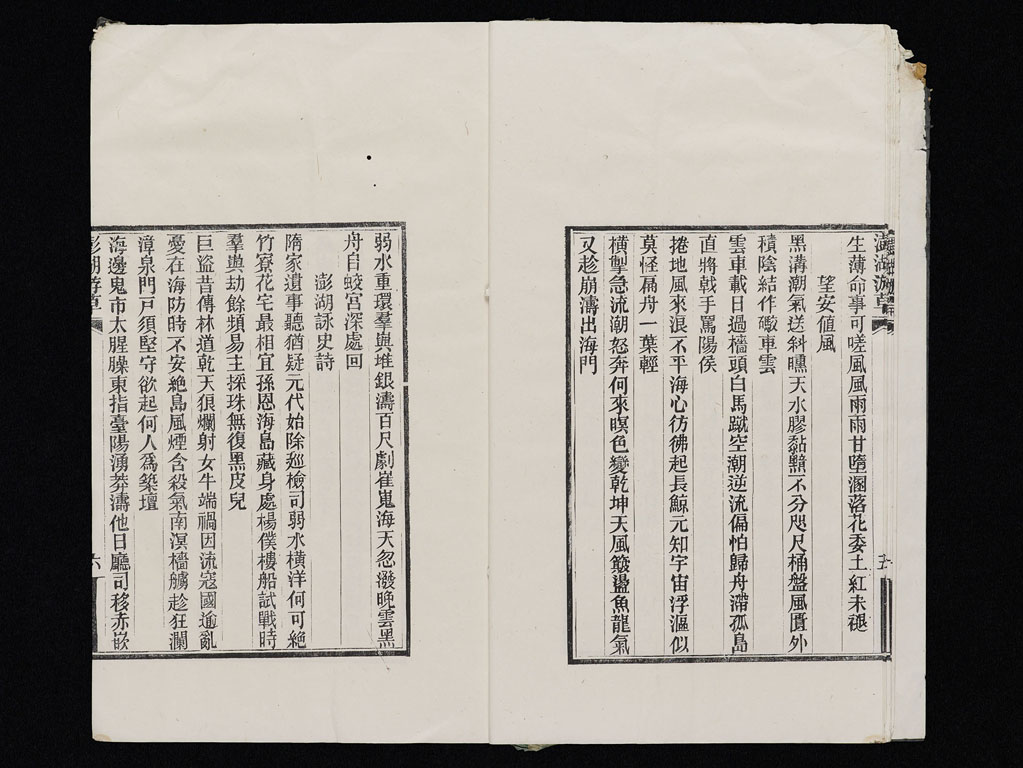 澎湖游草
五
生薄命事可嗟風風雨雨甘墮溷落花委土紅未褪
望安值風
黑溝潮氣送斜曛天水膠黏黯不分咫尺桶盤風匱外
積陰結作礮車雲
雲車載日過檣頭白馬蹴空潮逆流偏怕歸舟滯孤島
直將戟手罵陽侯
捲地風來浪不平海心彷彿起長鯨元知宇宙浮漚似
莫怪扁舟一葉輕
橫掣急流潮怒奔何來暝色變乾坤天風簸盪魚龍氣
又趁崩濤出海門
弱水重環羣與堆銀濤百尺劇崔嵬海天忽潑晚雲黑
舟自蛟宮深處回
澎湖詠史詩
隋家遺事聽猶疑元代始除巡檢司弱水橫洋何可絕
竹寮花宅最相宜孫恩海島藏身處楊僕樓船試戰時
羣與劫餘頻易主採珠無復黑皮兒
巨盜昔傳林道乾天狼爛射女牛端禍因流寇國逾亂
憂在海防時不安絶島風煙含殺氣南溟檣艣趁狂瀾
漳泉門戶須堅守欲起何人爲築壇
海邊鬼市太腥臊東指臺陽湧莽濤他日廳司移赤嵌
澎湖游草
六